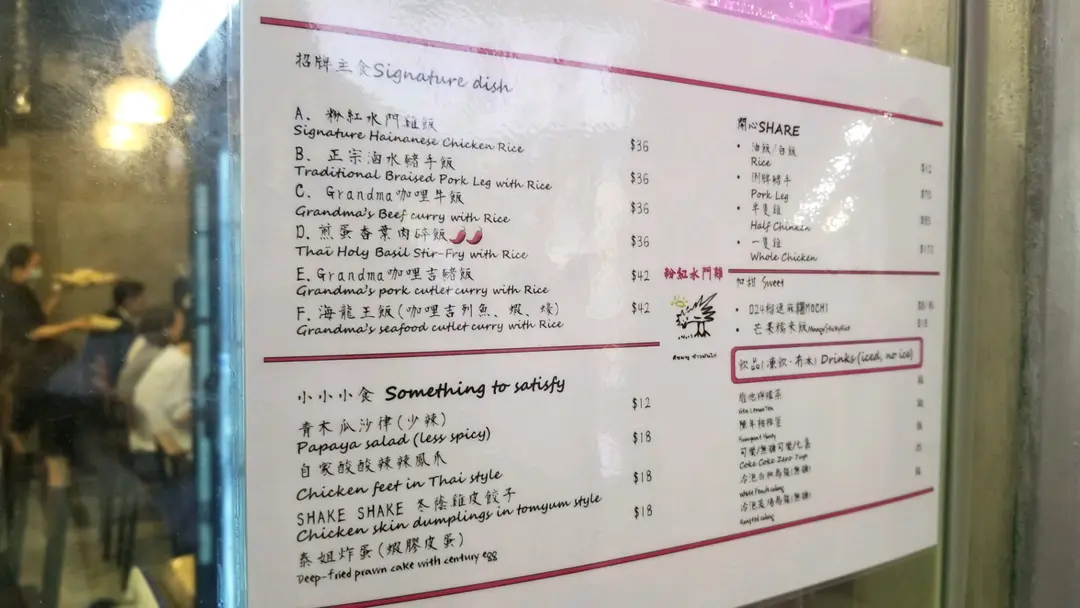 招牌主食Signature dish
A. 粉紅水門雞飯
Signature Hainanese Chicken Rice $36
B. 正宗滷水豬手飯
Traditional Braised Pork Leg with Rice $36
C. Grandma咖哩牛飯
Grandma's Beef curry with Rice $36
D. 煎蛋香葉肉碎飯
Thai Holy Basil Stir-Fry with Rice $36
E. Grandma咖哩吉豬飯
Grandma's pork cutlet curry with Rice $42
F. 海龍王飯(咖哩吉列魚、蝦、蠔)
Grandma's seafood cutlet curry with Rice $42
小小小食 Something to satisfy
青木瓜沙律(少辣) $12
Papaya salad (less spicy)
自家酸酸辣辣鳳爪 $18
Chicken feet in Thai style
SHAKE SHAKE 冬陰雞皮餃子 $18
Chicken skin dumplings in tomyum style
泰姐炸蛋(蝦膠皮蛋) $18
Deep-fried prawn cake with century egg
粉紅水門雞
開心SHARE
• 油飯/白飯
Rice
• 豬手
Pork Leg
• 半隻雞
Half Chicken
• 一隻雞
Whole Chicken
加甜 Sweet
• D24榴槤麻糬MOCHI
• 芒果糯米飯
飲品(凍飲·有冰) Drinks (iced, no ice)
維他檸檬茶
Vita Lemon Tea
陳年柑桔蜜
可樂/無糖可樂/七喜
Coke Coke Zero 7up
冷泡白桃烏龍(無糖)
White Peach oolong
Roasted oolong